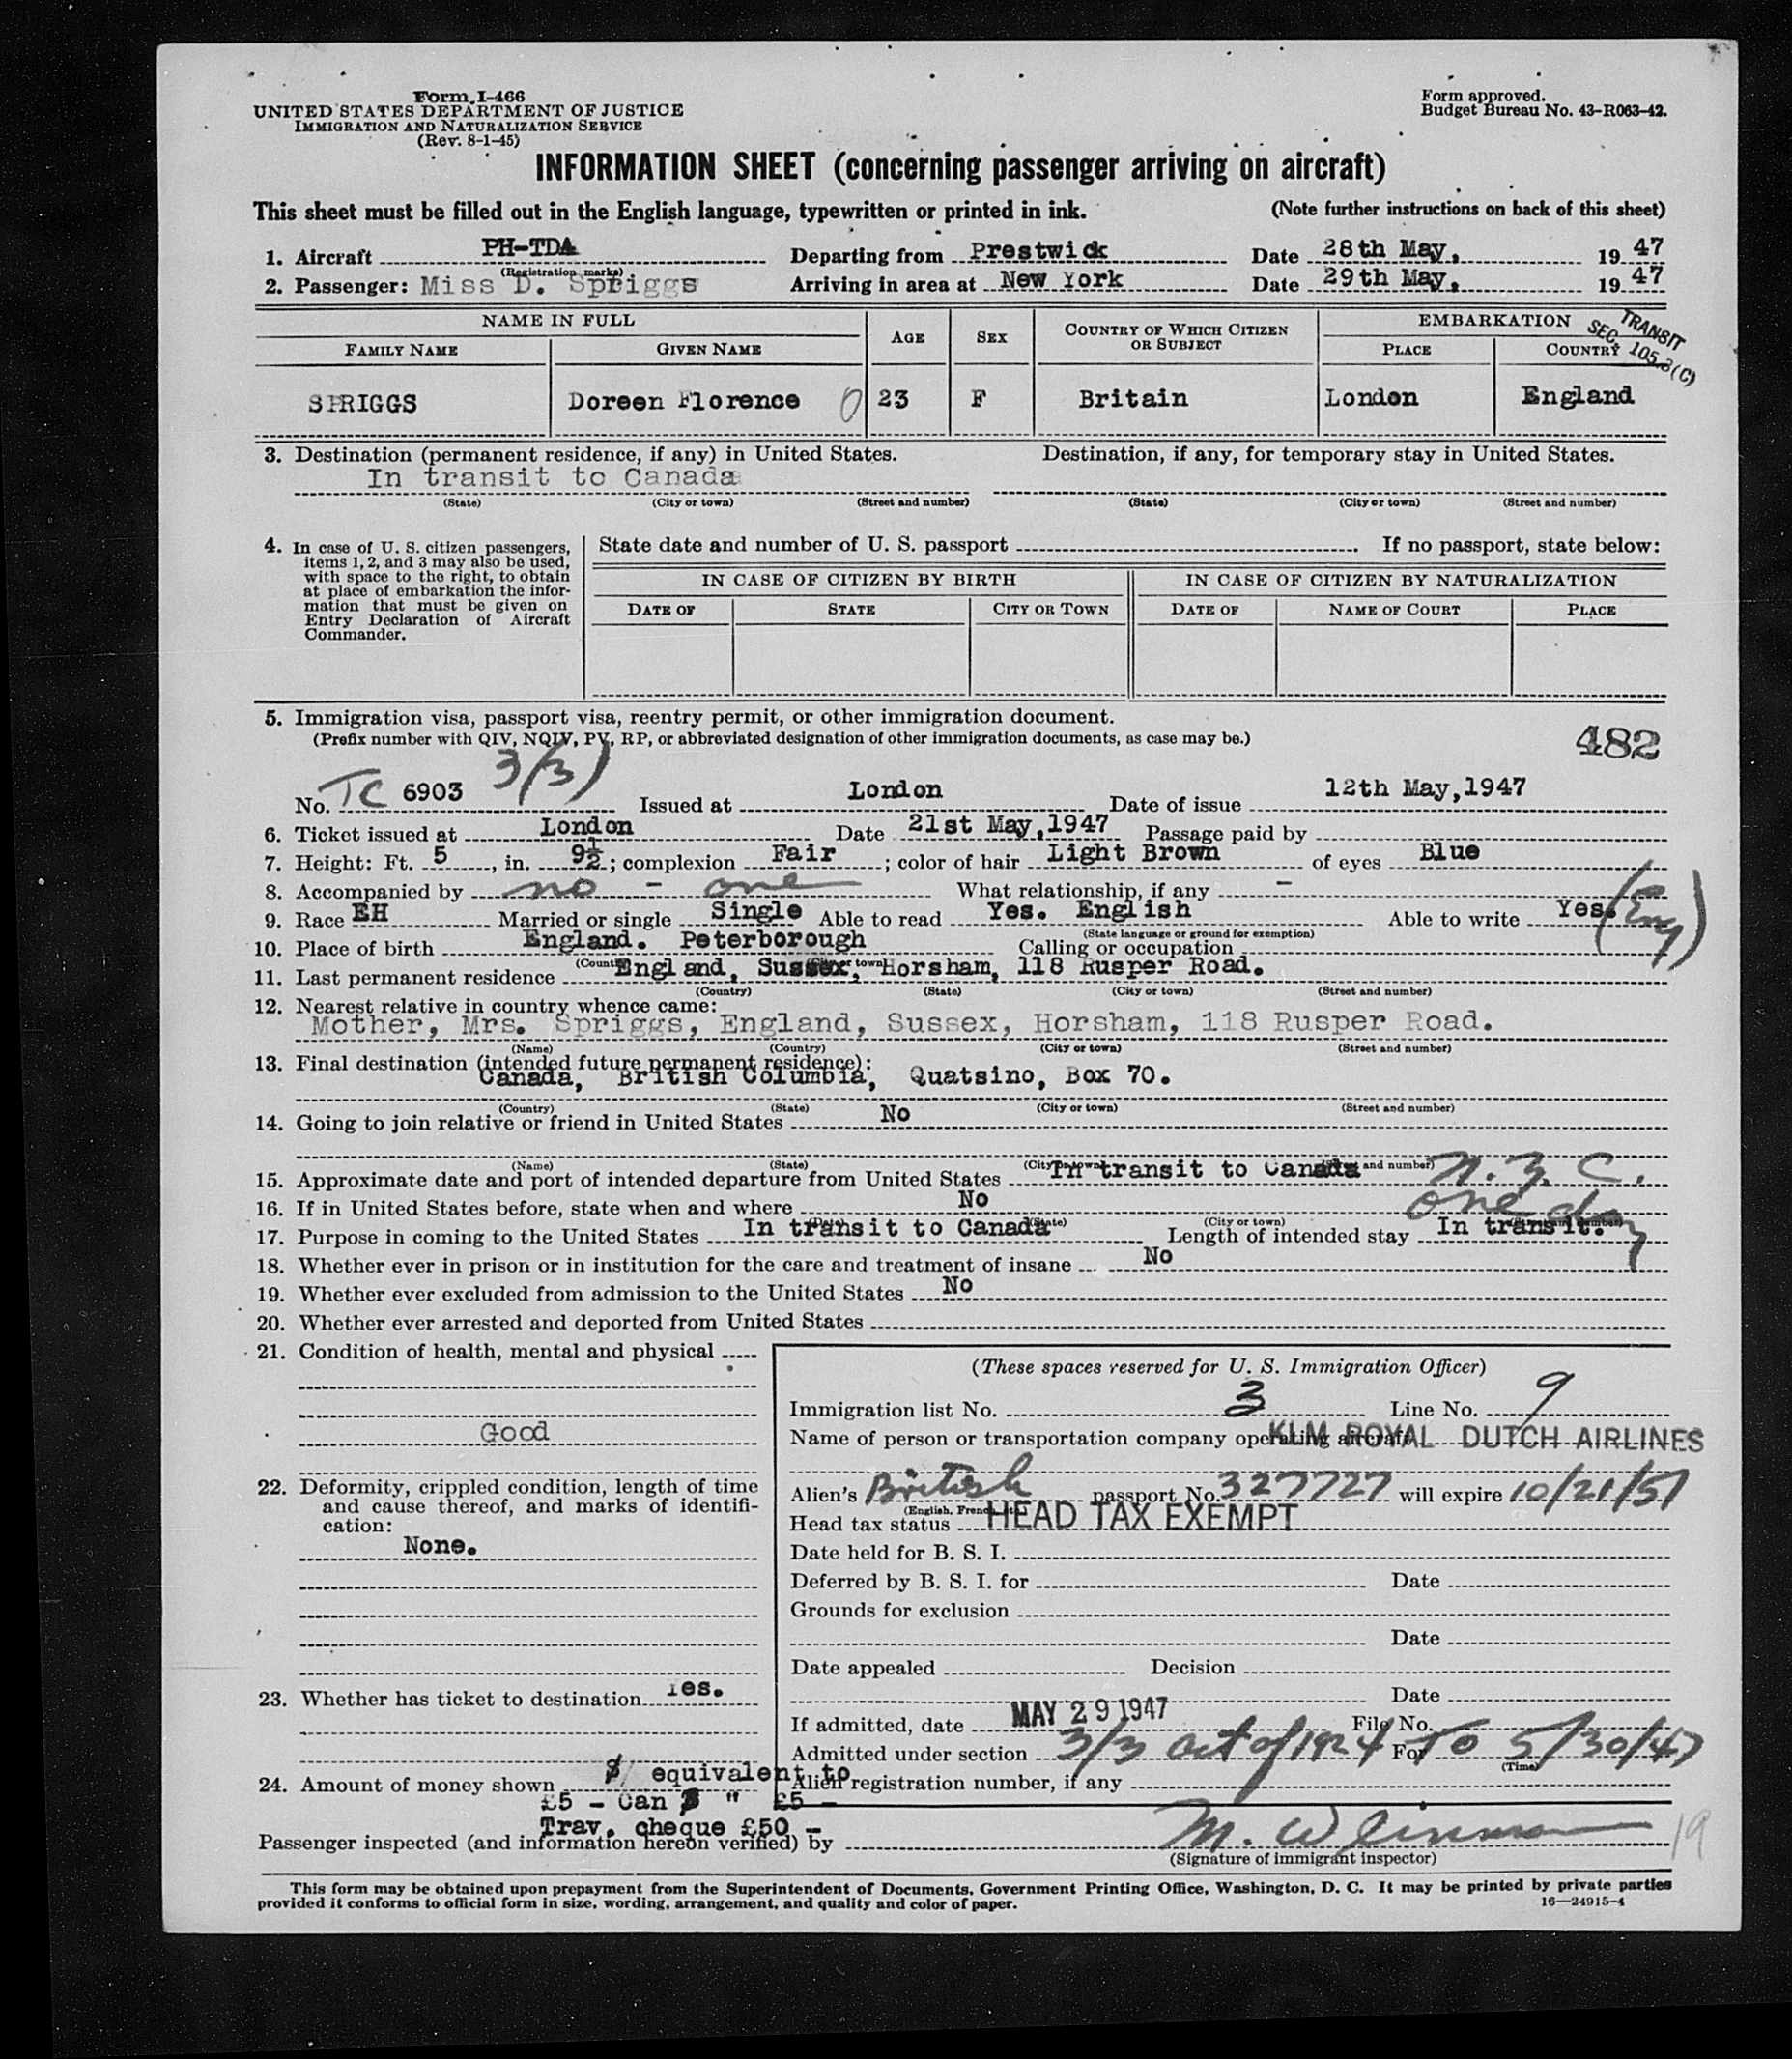 Form I-466
UNITED STATES DEPARTMENT OF JUSTICE
IMMIGRATION AND NATURALIZATION SERVICE
(Rev. 8-1-45)
Form approved.
Budget Bureau No. 43-R063-42.
INFORMATION SHEET (concerning passenger arriving on aircraft)
This sheet must be filled out in the English language, typewritten or printed in ink. (Note further instructions on back of this sheet)
1. Aircraft PH-TDA Departing from Prestwick Date 28th May, 1947
(Registration marks)
2. Passenger: Miss D. Spriggs Arriving in area at New York Date 29th May, 1947
NAME IN FULL AGE SEX COUNTRY OF WHICH CITIZEN OR SUBJECT EMBARKATION
FAMILY NAME GIVEN NAME PLACE COUNTRY
TRANSIT
SEC. 105.3(C)
SPRIGGS Doreen Florence 23 F Britain London England
3. Destination (permanent residence, if any) in United States. Destination, if any, for temporary stay in United States.
In transit to Canada
(State) (City or town) (Street and number) (State) (City or town) (Street and number)
4. In case of U. S. citizen passengers, items 1, 2, and 3 may also be used, with space to the right, to obtain at place of embarkation the information that must be given on Entry Declaration of Aircraft Commander.
State date and number of U. S. passport . If no passport, state below:
IN CASE OF CITIZEN BY BIRTH IN CASE OF CITIZEN BY NATURALIZATION
DATE OF STATE CITY OR TOWN DATE OF NAME OF COURT PLACE
5. Immigration visa, passport visa, reentry permit, or other immigration document.
(Prefix number with QIV, NQIV, PV, RP, or abbreviated designation of other immigration documents, as case may be.)
482
3(3)
No. TC 6903 Issued at London Date of issue 12th May, 1947
6. Ticket issued at London Date 21st May, 1947 Passage paid by
7. Height: Ft. 5, in. 9½; complexion Fair; color of hair Light Brown of eyes Blue
8. Accompanied by no - one What relationship, if any -
9. Race EH Married or single Single Able to read Yes. English Able to write Yes. (Eng)
(State language or ground for exemption)
10. Place of birth England. Peterborough Calling or occupation
(Country) (City or town)
11. Last permanent residence England, Sussex, Horsham, 118 Rusper Road.
(Country) (State) (City or town) (Street and number)
12. Nearest relative in country whence came:
Mother, Mrs. Spriggs, England, Sussex, Horsham, 118 Rusper Road.
(Name) (Country) (City or town) (Street and number)
13. Final destination (intended future permanent residence):
Canada, British Columbia, Quatsino, Box 70.
(Country) (State) (City or town) (Street and number)
14. Going to join relative or friend in United States No
(Name) (State) (City or town) (Street and number)
15. Approximate date and port of intended departure from United States In transit to Canada N.Y.C.
16. If in United States before, state when and where No
(Date) (State) (City or town) (Street and number)
one day
17. Purpose in coming to the United States In transit to Canada Length of intended stay In transit.
18. Whether ever in prison or in institution for the care and treatment of insane No
19. Whether ever excluded from admission to the United States No
20. Whether ever arrested and deported from United States
21. Condition of health, mental and physical
Good
22. Deformity, crippled condition, length of time and cause thereof, and marks of identification:
None.
23. Whether has ticket to destination Yes.
24. Amount of money shown $ equivalent to
£5 - Can $ " £5 -
Trav. cheque £50 -
(These spaces reserved for U. S. Immigration Officer)
Immigration list No. 3 Line No. 9
Name of person or transportation company operating aircraft KLM ROYAL DUTCH AIRLINES
Alien's British passport No. 327727 will expire 10/21/51
(English, French, etc.)
Head tax status HEAD TAX EXEMPT
Date held for B. S. I.
Deferred by B. S. I. for Date
Grounds for exclusion
Date
Date appealed Decision
Date
If admitted, date MAY 29 1947 File No.
Admitted under section 3/3 Act of 1924 For To 5/30/47
(Time)
Alien registration number, if any
Passenger inspected (and information hereon verified) by
(Signature of immigrant inspector)
19
This form may be obtained upon prepayment from the Superintendent of Documents, Government Printing Office, Washington, D. C. It may be printed by private parties
provided it conforms to official form in size, wording, arrangement, and quality and color of paper. 16—24915-4